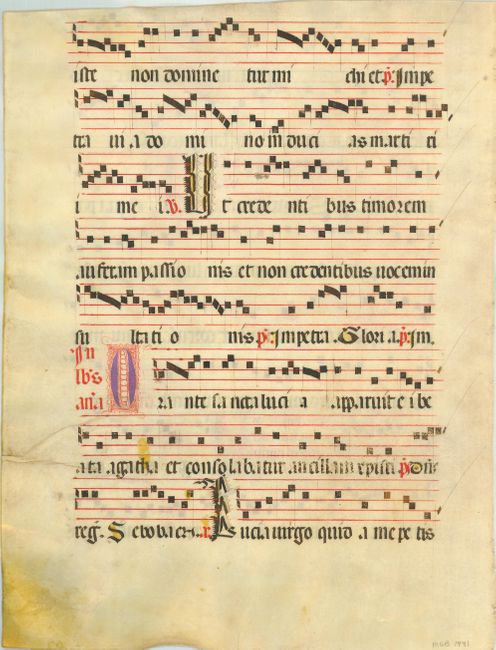 iste non domine tur mi chi et p̄. Impe
tra m a do mi no in du ci as mar ti ri
i me i. V. U t crede nti bus timorem
auferam passio nis et non credentibus uocem in
su lta ti o nis p̄. Impetra. Glori a. p̄. Im.
In
lb's
an̄a O ra nte sancta luci a apparuit ei be
a ta agatha et conso la batur ancillam xpisti p̄
reg̃. Luci a uirgo quid a me pe tis
MGB 1441